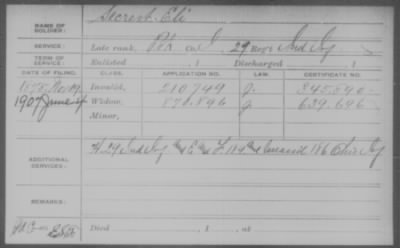 NAME OF SOLDIER: Secrest Eli
SERVICE: Late rank, Pvt Co. I, 29 Reg't Ind Inf
TERM OF SERVICE: Enlisted , 1 Discharged , 1
DATE OF FILING. CLASS. APPLICATION NO. LAW. CERTIFICATE NO.
1878 Invalid, 210749 345,890
1907 June Widow, 870,896 639,696
Minor,
ADDITIONAL SERVICES: 29 Ind Inf 186 Ohio Inf
REMARKS:
Died , 1 , at